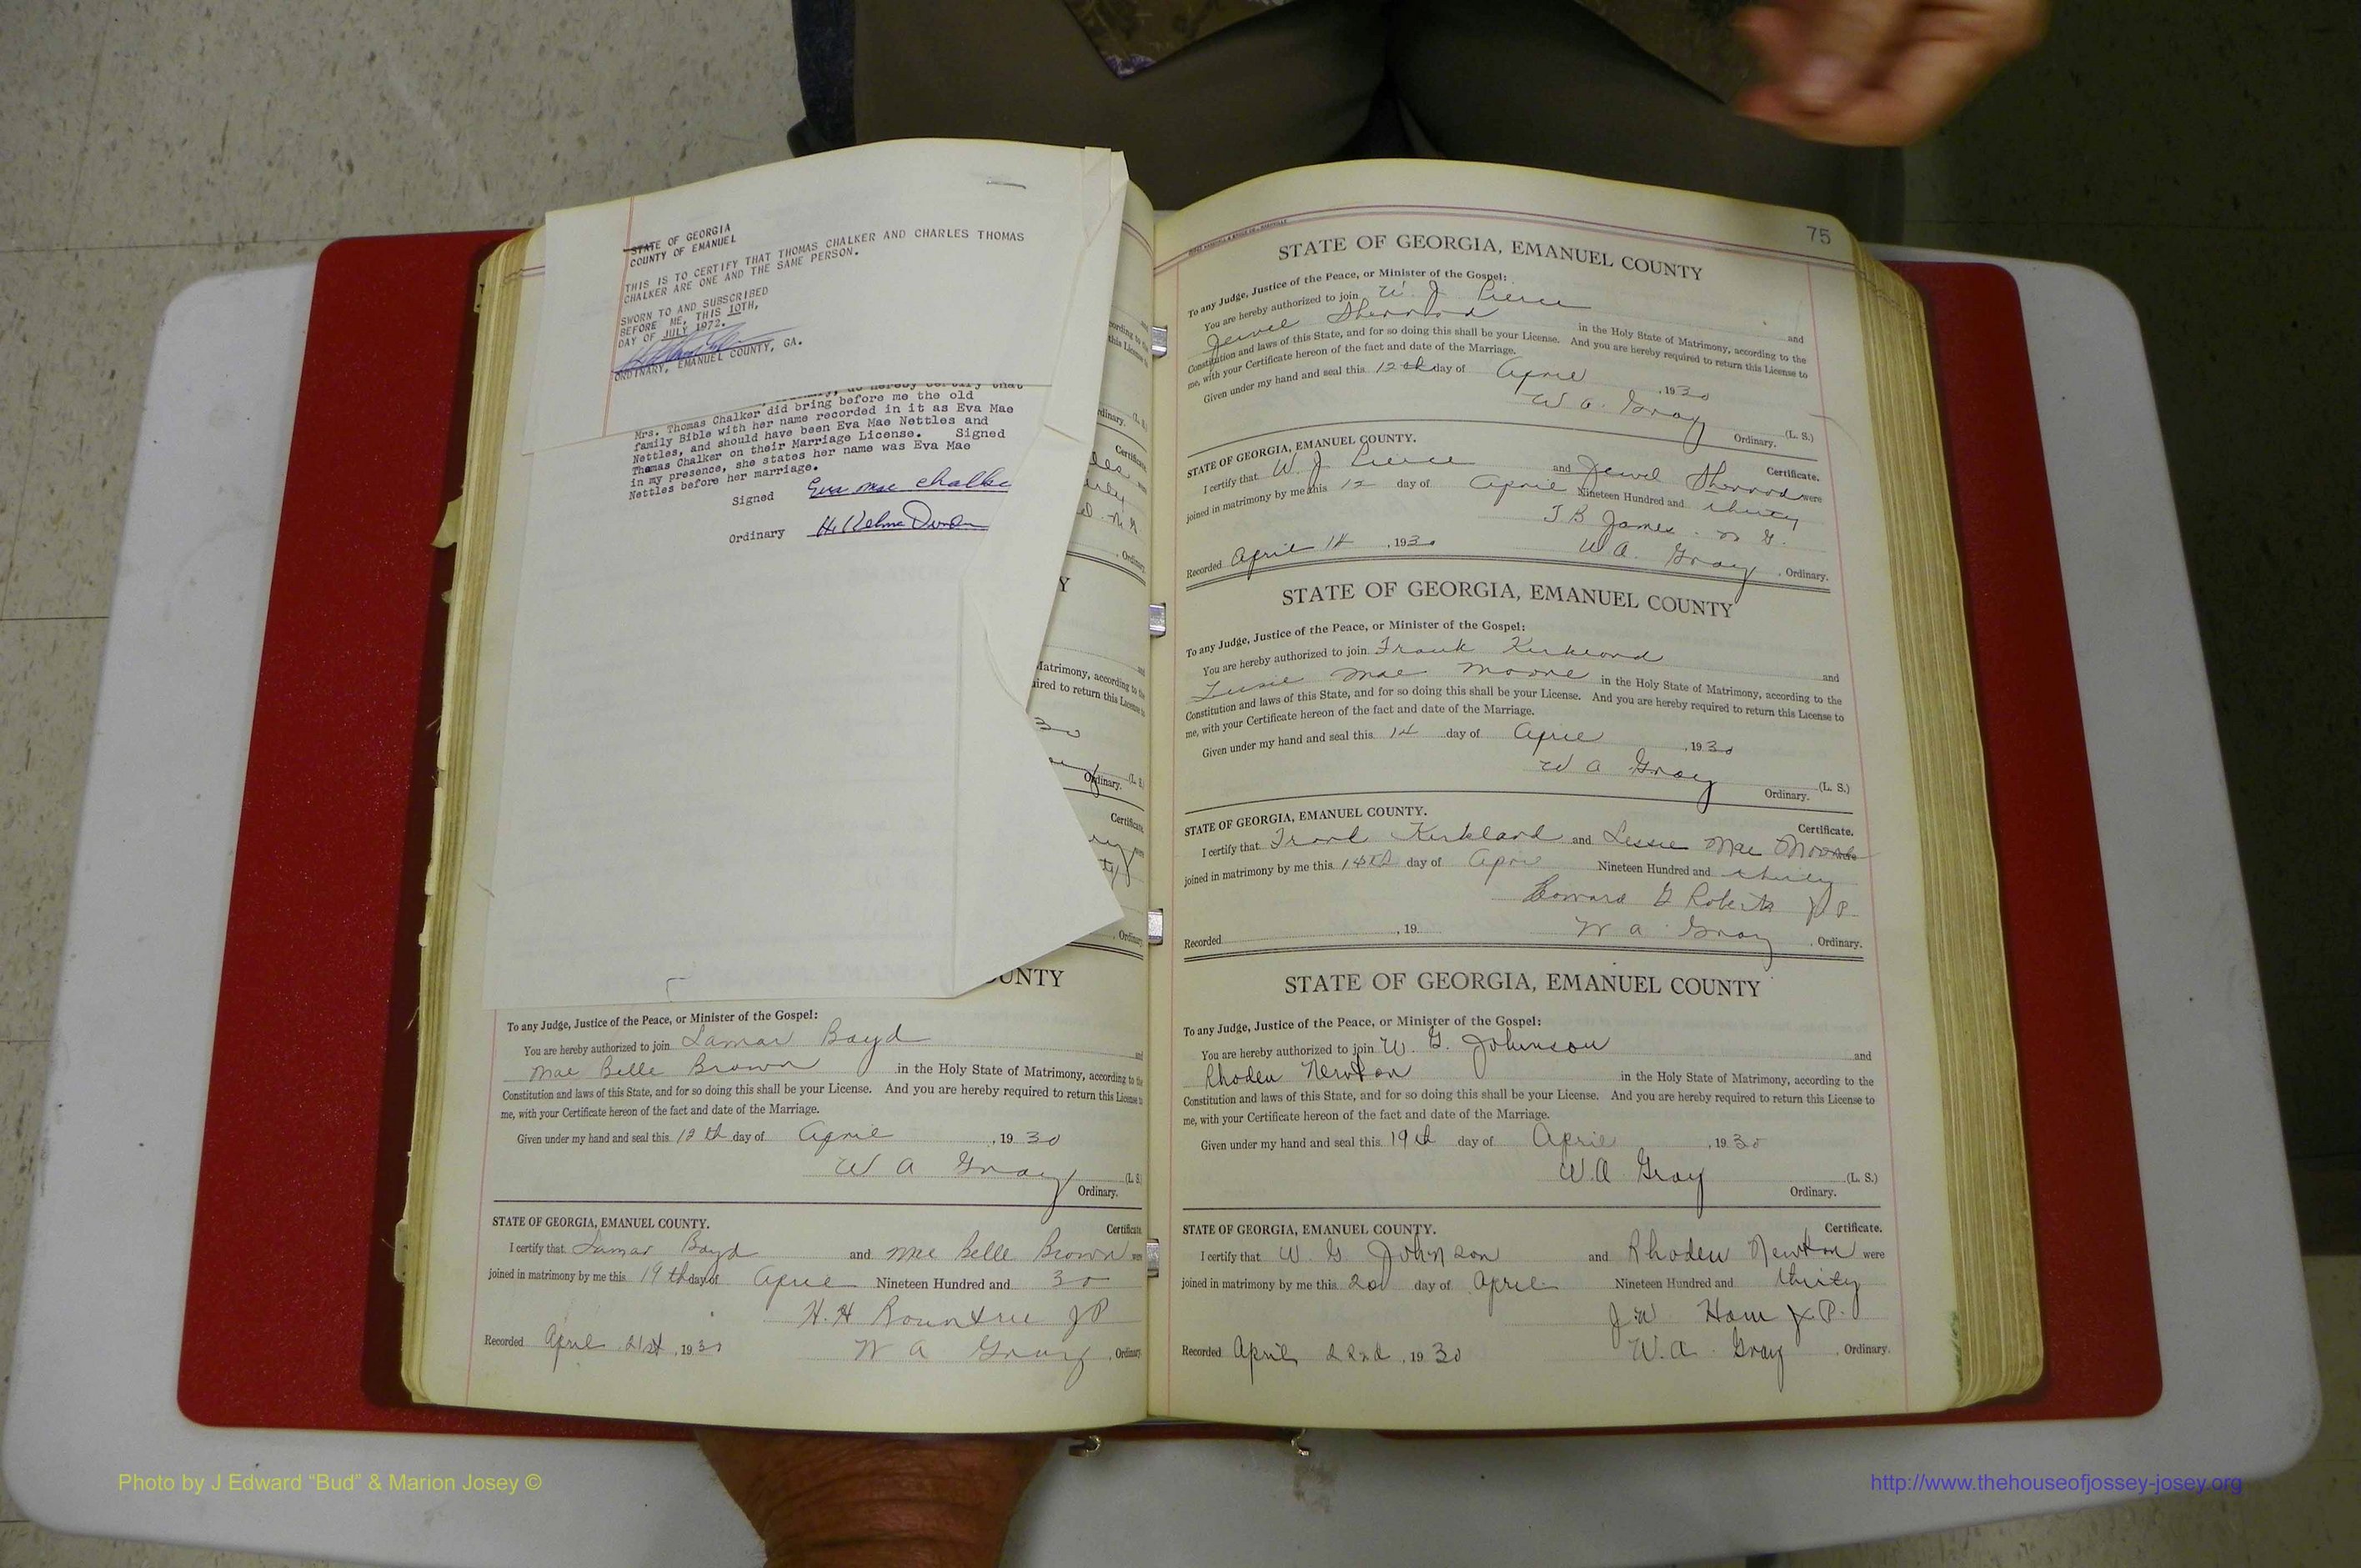 STATE OF GEORGIA
COUNTY OF EMANUEL
THIS IS TO CERTIFY THAT THOMAS CHALKER AND CHARLES THOMAS
CHALKER ARE ONE AND THE SAME PERSON.
SWORN TO AND SUBSCRIBED
BEFORE ME, THIS 10TH,
DAY OF JULY 1972.
ORDINARY, EMANUEL COUNTY, GA.
do hereby certify that
Mrs. Thomas Chalker did bring before me the old
family Bible with her name recorded in it as Eva Mae
Nettles, and should have been Eva Mae Nettles and
Thomas Chalker on their Marriage License. Signed
in my presence, she states her name was Eva Mae
Nettles before her marriage.
Signed Eva Mae Chalker
Ordinary
UNTY
To any Judge, Justice of the Peace, or Minister of the Gospel:
You are hereby authorized to join Lamar Boyd and
Mae Belle Brown in the Holy State of Matrimony, according to the
Constitution and laws of this State, and for so doing this shall be your License. And you are hereby required to return this License to
me, with your Certificate hereon of the fact and date of the Marriage.
Given under my hand and seal this 12th day of April, 1930
W A Gray (L. S.)
Ordinary.
STATE OF GEORGIA, EMANUEL COUNTY. Certificate.
I certify that Lamar Boyd and Mae Belle Brown were
joined in matrimony by me this 19th day of April Nineteen Hundred and 30
H. H Rountree JP
Recorded April 21st, 1930 W A Gray, Ordinary
75
STATE OF GEORGIA, EMANUEL COUNTY
To any Judge, Justice of the Peace, or Minister of the Gospel:
You are hereby authorized to join W. J. Pierce and
Jewel Sherrod in the Holy State of Matrimony, according to the
Constitution and laws of this State, and for so doing this shall be your License. And you are hereby required to return this License to
me, with your Certificate hereon of the fact and date of the Marriage.
Given under my hand and seal this 12th day of April, 1930
W a. Gray (L. S.)
Ordinary.
STATE OF GEORGIA, EMANUEL COUNTY. Certificate.
I certify that W. J. Pierce and Jewel Sherrod were
joined in matrimony by me this 12 day of April Nineteen Hundred and thirty
J B James
Recorded April 14, 1930 W A. Gray, Ordinary.
STATE OF GEORGIA, EMANUEL COUNTY
To any Judge, Justice of the Peace, or Minister of the Gospel:
You are hereby authorized to join Frank Kirkland and
Mae Moore in the Holy State of Matrimony, according to the
Constitution and laws of this State, and for so doing this shall be your License. And you are hereby required to return this License to
me, with your Certificate hereon of the fact and date of the Marriage.
Given under my hand and seal this 14 day of April, 1930
W a Gray (L. S.)
Ordinary.
STATE OF GEORGIA, EMANUEL COUNTY. Certificate.
I certify that Frank Kirkland and Lessie Mae Moore were
joined in matrimony by me this 14th day of April Nineteen Hundred and thirty
Howard G Roberts J P.
Recorded, 19 W a Gray, Ordinary.
STATE OF GEORGIA, EMANUEL COUNTY
To any Judge, Justice of the Peace, or Minister of the Gospel:
You are hereby authorized to join W. G. Johnson and
Rhoden Newton in the Holy State of Matrimony, according to the
Constitution and laws of this State, and for so doing this shall be your License. And you are hereby required to return this License to
me, with your Certificate hereon of the fact and date of the Marriage.
Given under my hand and seal this 19th day of April, 1930
W. A Gray (L. S.)
Ordinary.
STATE OF GEORGIA, EMANUEL COUNTY. Certificate.
I certify that W. G. Johnson and Rhoden Newton were
joined in matrimony by me this 20 day of April Nineteen Hundred and thirty
J. W Ham J. P.
Recorded April 22nd, 1930 W. A. Gray, Ordinary.
Photo by J Edward “Bud” & Marion Josey ©
http://www.thehouseofjossey-josey.org